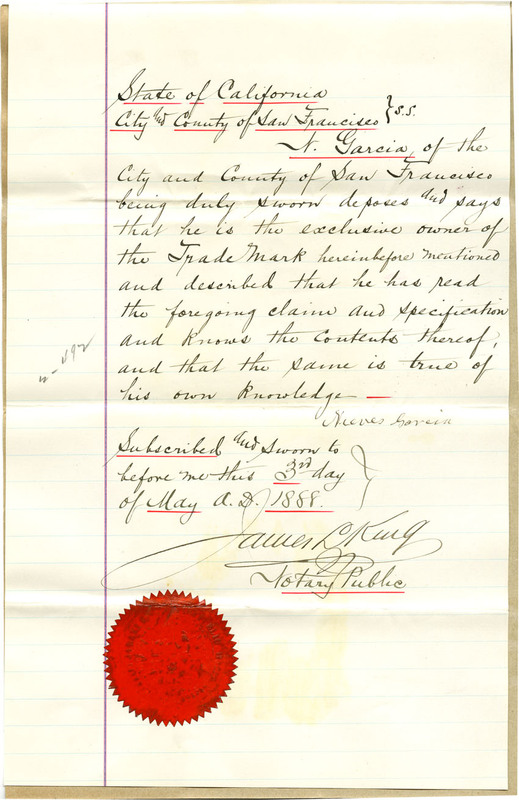 State of California
City and County of San Francisco } S.S.
N. Garcia, of the
City and County of San Francisco
being duly sworn deposes and says
that he is the exclusive owner of
the Trade Mark hereinbefore mentioned
and described that he has read
the foregoing claim and specification
and knows the contents thereof,
and that the same is true of
his own knowledge —
Nieves Garcia
Subscribed and sworn to
before me this 3rd day
of May A.D. 1888.
James L King
Notary Public